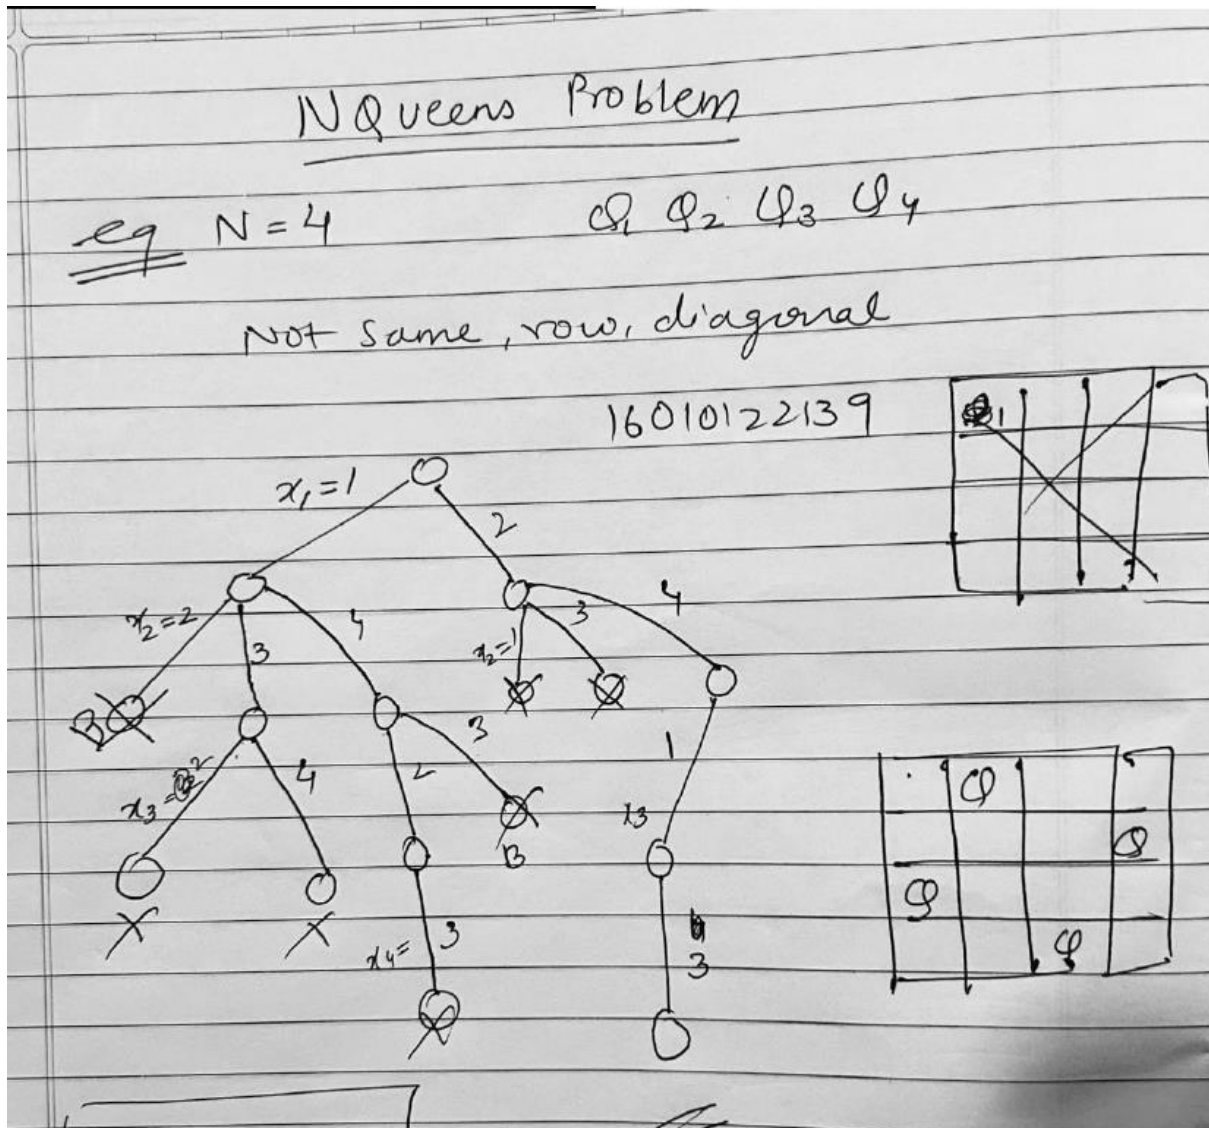 NQueens Problem
eg N=4 Q1 Q2 Q3 Q4
Not same, row, diagonal
16010122139
1
x1=1 2
x2=2 3 4 x2=1 3 4
B
x3= 2 4 2 3 1
x3
B
x4= 3 3
Q
Q
Q
Q